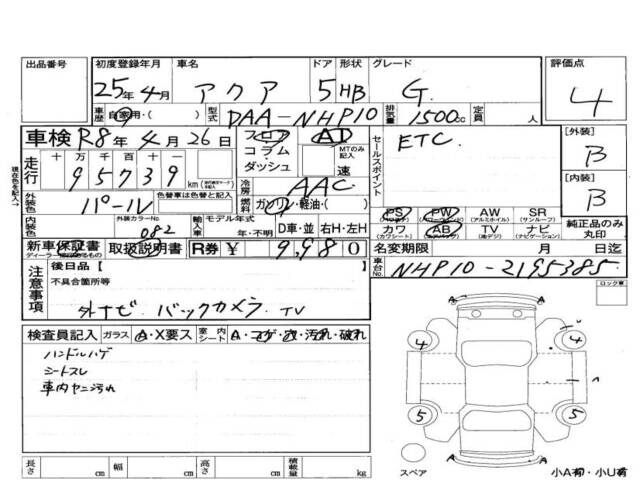 出品番号 初度登録年月 車名 ドア 形状 グレード 評価点
25年4月 アクア 5 HB G 4
車歴 自家用・( ) 型式 DAA-NHP10 排気量 1500cc 定員 人
車検 R8年4月26日 フロア コラム ダッシュ AT MTのみ記入 速 セールスポイント ETC [外装] B
走行 十万千百十一 95739 km 冷房 AAC [内装] B
外装色 パール 色替車は色替と記入 燃料 ガソリン・軽油・( )
PS PW AW (アルミホイル) SR (サンルーフ) 純正品のみ丸印
内装色 外装カラーNo 082 輸入車 モデル年式 年・不明 D車・並 右H・左H カワ AB TV (地デジ) ナビ (ナビゲーション)
新車保証書 取扱説明書 R券 ¥ 9,980 名変期限 月 日迄
ディーラー
車台No. NHP10-2195385
注意事項 後日品[ ]
不具合箇所等
外ナビ バックカメラ TV
ロック車
検査員記入 ガラス A・X要ス 室内シート A・コゲ・穴・汚れ・破れ
ハンドルハゲ
シートスレ
車内ヤニ汚れ
A A
4 4
5 5
A A
長さ cm 幅 cm 高さ cm 積載量 kg
スペア 小A有・小U有
現在色を記入